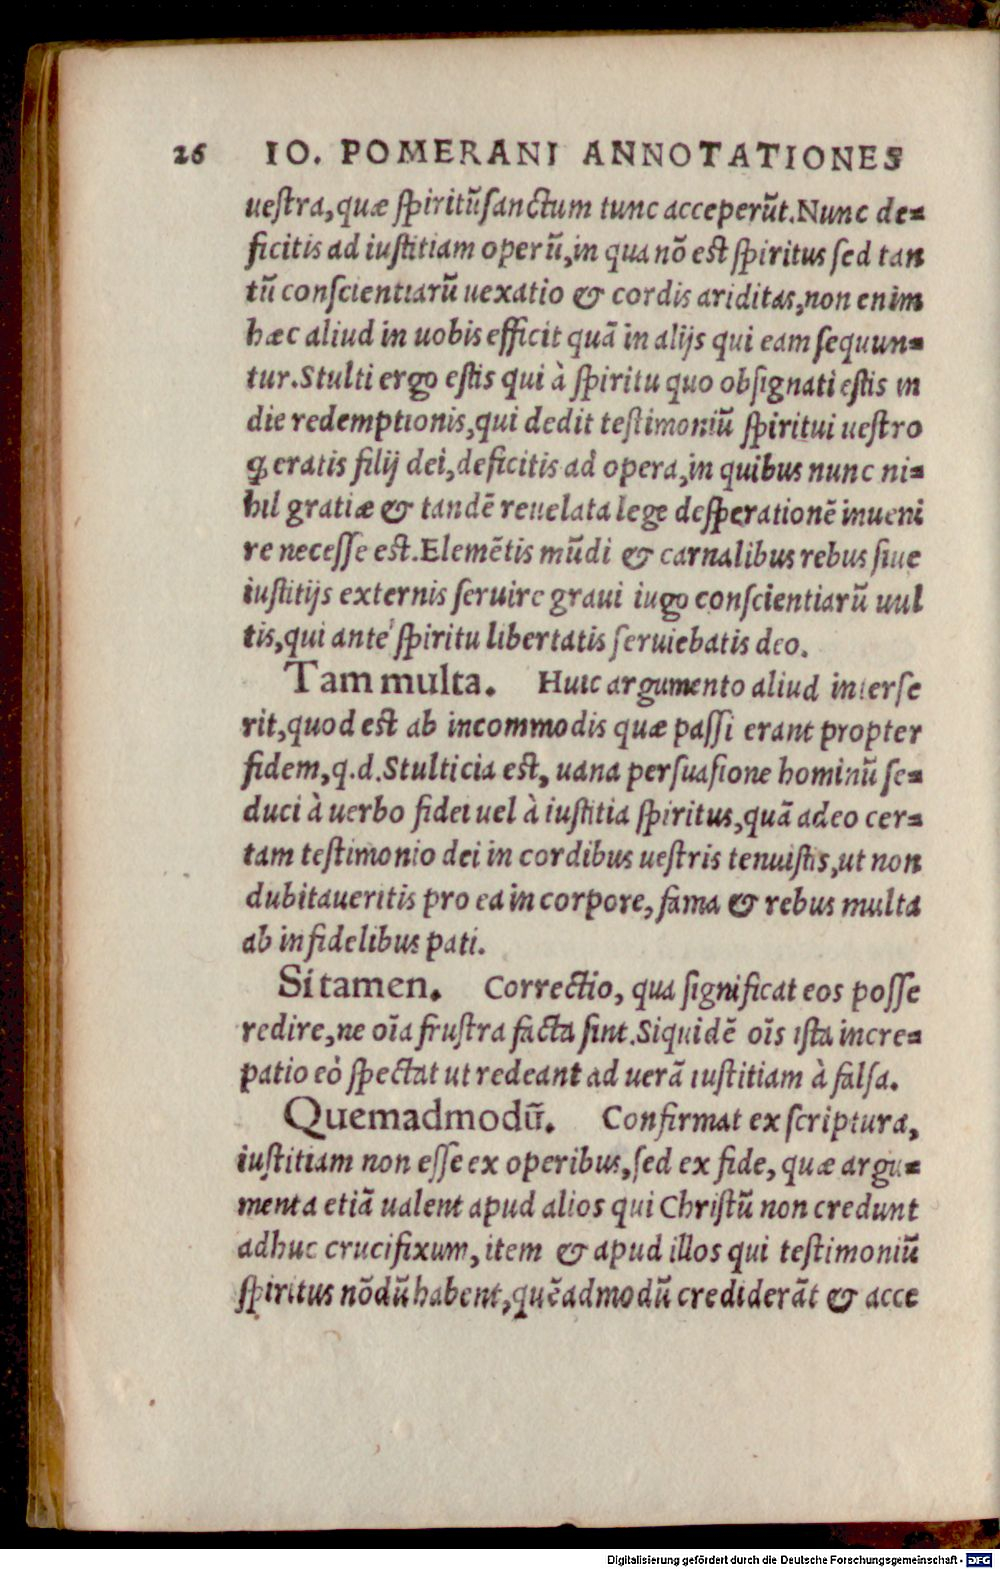 26 IO. POMERANI ANNOTATIONES
uestra, quæ spiritũsanctum tunc acceperũt. Nunc de=
ficitis ad iustitiam operũ, in qua nõ est spiritus sed tan
tũ conscientiarũ uexatio & cordis ariditas, non enim
hæc aliud in uobis efficit quã in alijs qui eam sequun=
tur. Stulti ergo estis qui à spiritu quo obsignati estis in
die redemptionis, qui dedit testimoniũ spiritui uestro
ꝙ eratis filij dei, deficitis ad opera, in quibus nunc ni=
hil gratiæ & tandẽ reuelata lege desperationẽ inueni
re necesse est. Elemẽtis mũdi & carnalibus rebus siue
iustitijs externis seruire graui iugo conscientiarũ uul
tis, qui ante spiritu libertatis seruiebatis deo.
Tam multa. Huic argumento aliud interse
rit, quod est ab incommodis quæ passi erant propter
fidem, q.d. Stulticia est, uana persuasione hominũ se=
duci à uerbo fidei uel à iustitia spiritus, quã adeo cer=
tam testimonio dei in cordibus uestris tenuistis, ut non
dubitaueritis pro ea in corpore, fama & rebus multa
ab infidelibus pati.
Si tamen. Correctio, qua significat eos posse
redire, ne oĩa frustra facta sint. Siquidẽ oĩs ista incre=
patio eò spectat ut redeant ad uerã iustitiam à falsa.
Quemadmodũ. Confirmat ex scriptura,
iustitiam non esse ex operibus, sed ex fide, quæ argu=
menta etiã ualent apud alios qui Christũ non credunt
adhuc crucifixum, item & apud illos qui testimoniũ
spiritus nõdũ habent, quẽadmodũ crediderãt & acce
Digitalisierung gefördert durch die Deutsche Forschungsgemeinschaft - DFG